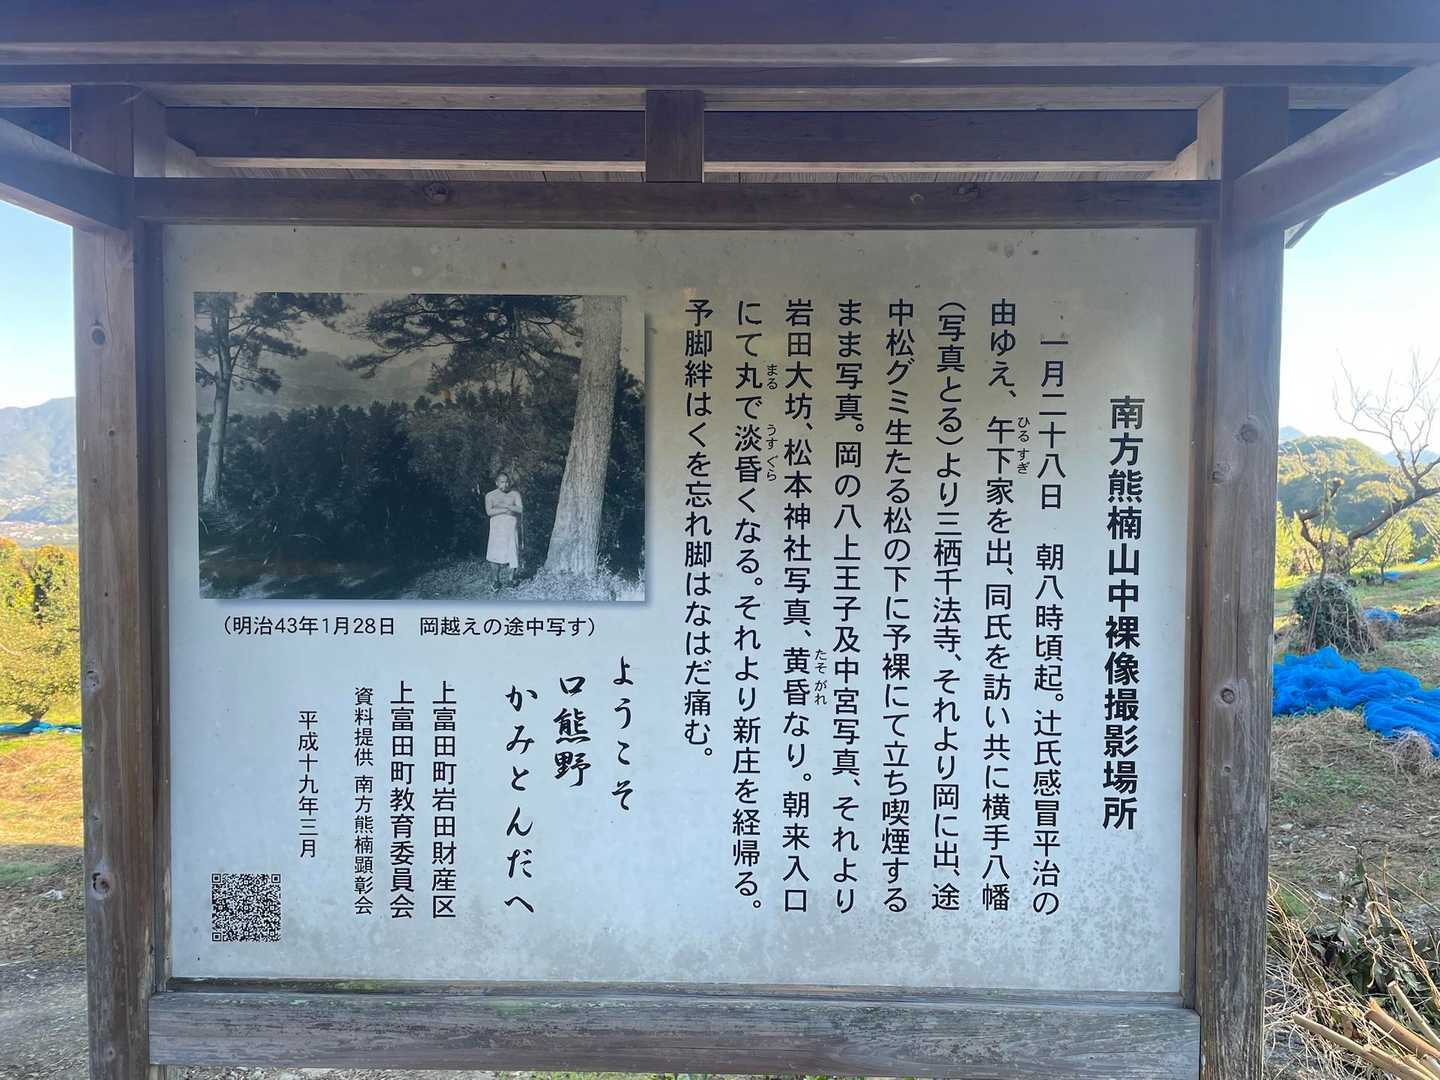 南方熊楠山中裸像撮影場所
一月二十八日　朝八時頃起。辻氏感冒平治の
由ゆえ、午下家を出、同氏を訪い共に横手八幡
ひる すぎ
（写真とる）より三栖千法寺、それより岡に出、途
中松グミ生たる松の下に予裸にて立ち喫煙する
まま写真。岡の八上王子及中宮写真、それより
岩田大坊、松本神社写真、黄昏なり。朝来入口
たそ がれ
にて丸で淡昏くなる。それより新庄を経帰る。
まる
うす ぐら
予脚絆はくを忘れ脚はなはだ痛む。
（明治43年1月28日　岡越えの途中写す）
ようこそ
口熊野
かみとんだへ
上富田町岩田財産区
上富田町教育委員会
資料提供 南方熊楠顕彰会
平成十九年三月